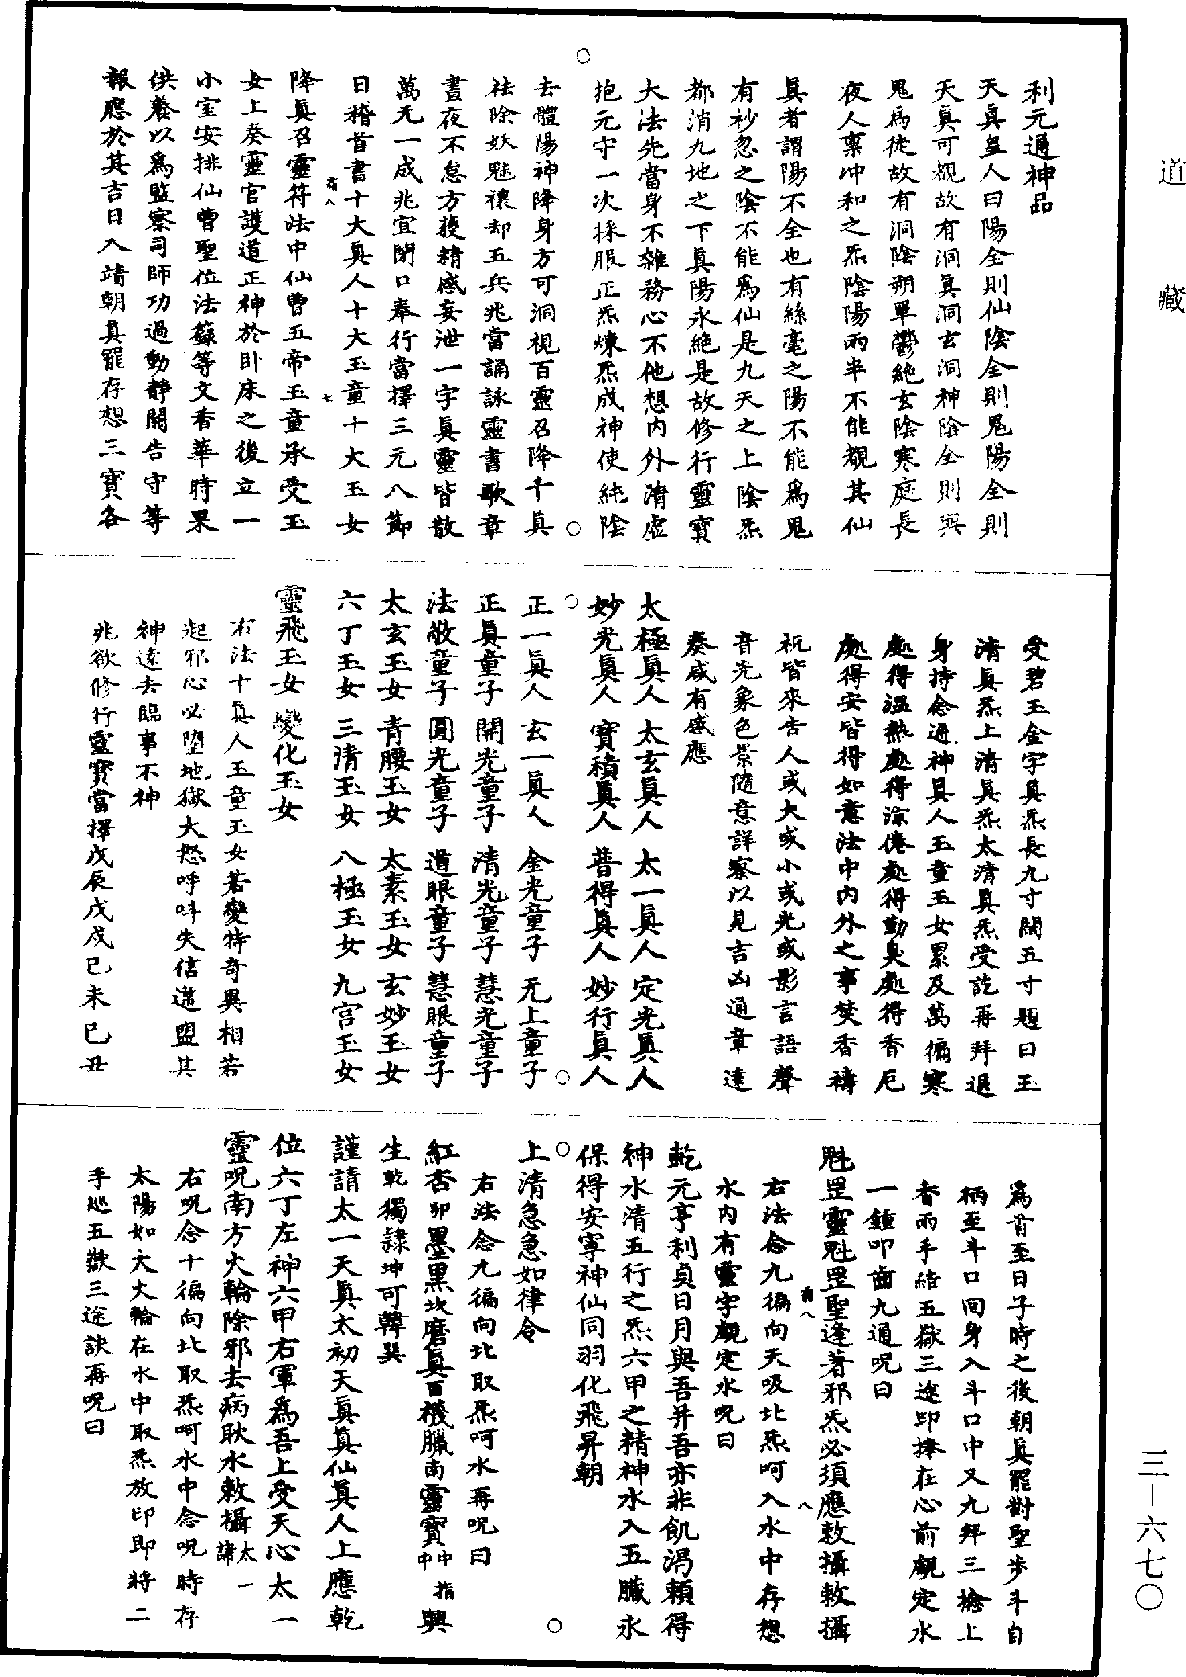 道藏
利元通神品
天真皇人曰陽全則仙陰全則鬼陽全則
天真可覩故有洞真洞玄洞神陰全則與
鬼為徒故有洞陰朔單鬱絕玄陰寒庭長
夜人稟沖和之炁陰陽兩半不能覩其仙
真者謂陽不全也有絲毫之陽不能為鬼
有秒忽之陰不能為仙是九天之上陰炁
都消九地之下真陽永絕是故修行靈寶
大法先當身不雜務心不他想內外清虛
抱元守一次採服正炁煉炁成神使純陰
去體陽神降身方可洞視百靈召降千真
祛除妖魅禳却五兵兆當誦詠靈書歌章
晝夜不怠方獲精感妄泄一字真靈皆散
萬无一成兆宜閉口奉行當擇三元八節
日稽首書十大真人十大玉童十大玉女
降真召靈符法中仙曹五帝玉童承受玉
女上奏靈官護道正神於臥床之後立一
小室安排仙曹聖位法籙等文香華時果
供養以為監察司師功過動靜關告守等
報應於其吉日入靖朝真罷存想三寶各
受碧玉金字真炁長九寸闊五寸題曰玉
清真炁上清真炁太清真炁受訖再拜退
身持念通神真人玉童玉女累及萬徧寒
處得溫熱處得涼倦處得勤臭處得香厄
處得安皆得如意法中內外之事焚香禱
祝皆來告人或大或小或光或影言語聲
音光象色景隨意詳察以見吉凶通章達
奏咸有感應
太極真人 太玄真人 太一真人 定光真人
妙光真人 寶積真人 普得真人 妙行真人
正一真人 玄一真人 金光童子 无上童子
正真童子 開光童子 清光童子 慧光童子
法敬童子 圓光童子 道眼童子 慧眼童子
太玄玉女 青腰玉女 太素玉女 玄妙玉女
六丁玉女 三清玉女 八極玉女 九宮玉女
靈飛玉女 變化玉女
右法十真人玉童玉女若變特奇異相若
起邪心必墮地獄大怒呼吽失信違盟其
神遠去臨事不神
兆欲修行靈寶當擇戊辰戊戌己未己丑
為首至日子時之後朝真罷對聖步斗自
柄至斗口間身入斗口中又九拜三捻上
香兩手結五嶽三途印捧在心前覷定水
一鍾叩齒九通呪曰
魁罡靈魁罡聖逢著邪炁必須應敕攝敕攝
右法念九徧向天吸北炁呵入水中存想
水內有靈字覷定水呪曰
乾元亨利貞日月與吾并吾亦非飢渴賴得
神水清五行之炁六甲之精神水入五臟永
保得安寧神仙同羽化飛昇朝
上清急急如律令
右法念九徧向北取炁呵水再呪曰
紅杏卯墨黑坎磨真百機臘南靈寶中中指興
生乾獨隸坤可韓巽
謹請太一天真太初天真真仙真人上應乾
位六丁左神六甲右軍為吾上受天心太一
靈呪南方火輪除邪去病耿水敕攝太一諱
右呪念十徧向北取炁呵水中念呪時存
太陽如大火輪在水中取炁放印即將二
手掐五嶽三途訣再呪曰
三－六七〇